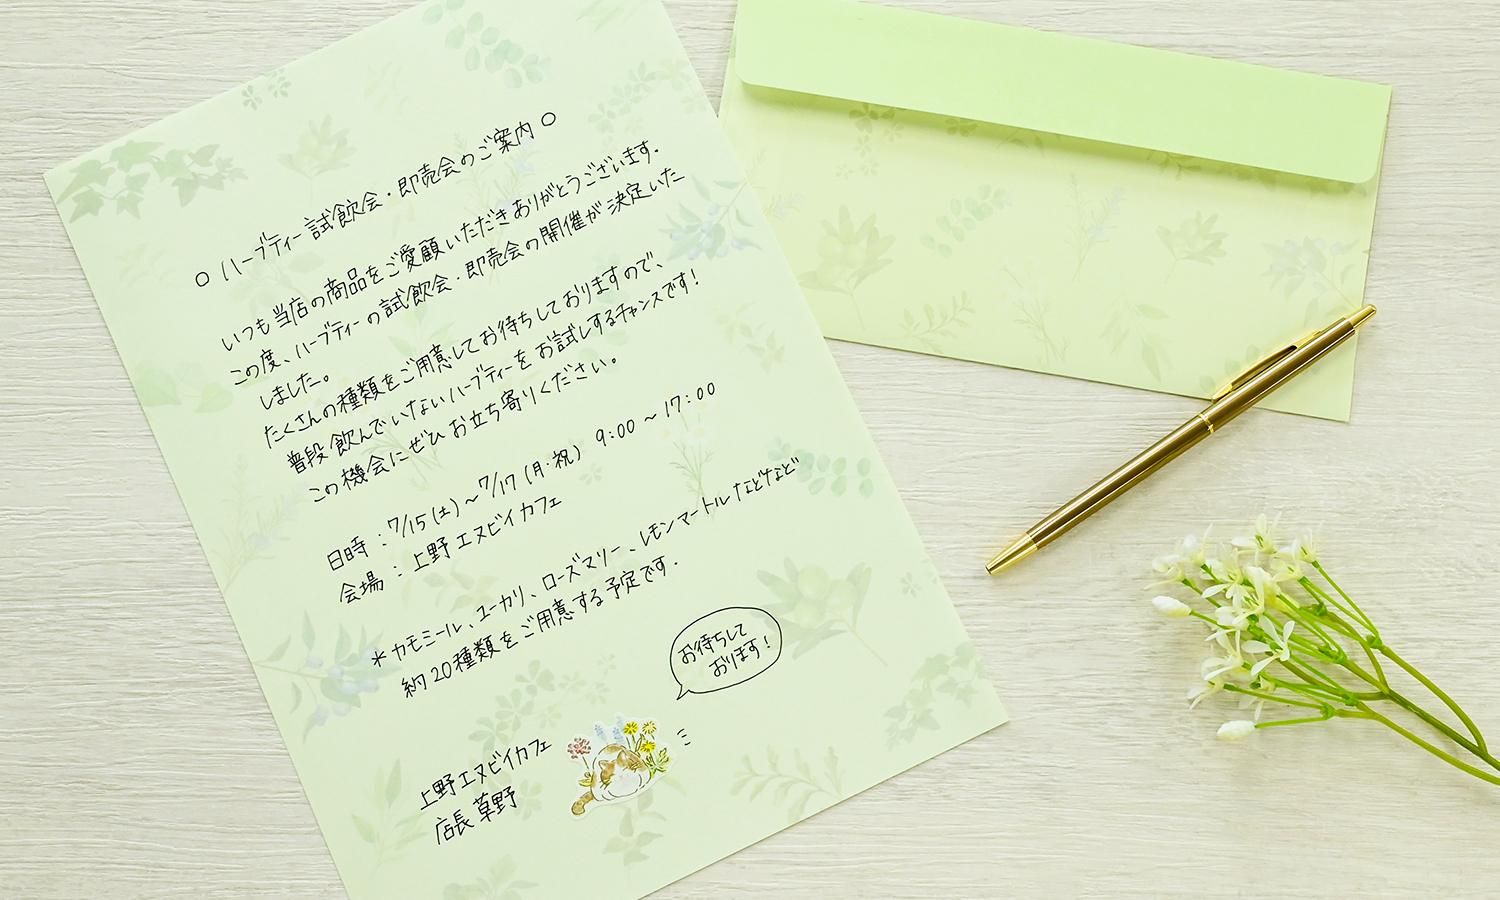 ○ ハーブティー試飲会・即売会のご案内 ○
いつも当店の商品をご愛顧いただきありがとうございます.
この度、ハーブティーの試飲会・即売会の開催が決定いた
しました。
たくさんの種類をご用意してお待ちしておりますので、
普段飲んでいないハーブティーをお試しするチャンスです!
この機会にぜひお立ち寄りください。
日時:7/15(土)~7/17(月・祝) 9:00~17:00
会場:上野エヌビイカフェ
*カモミール、ユーカリ、ローズマリー、レモンマートルなどなど
約20種類をご用意する予定です.
お待ちして
おります!
上野エヌビイカフェ
店長 草野